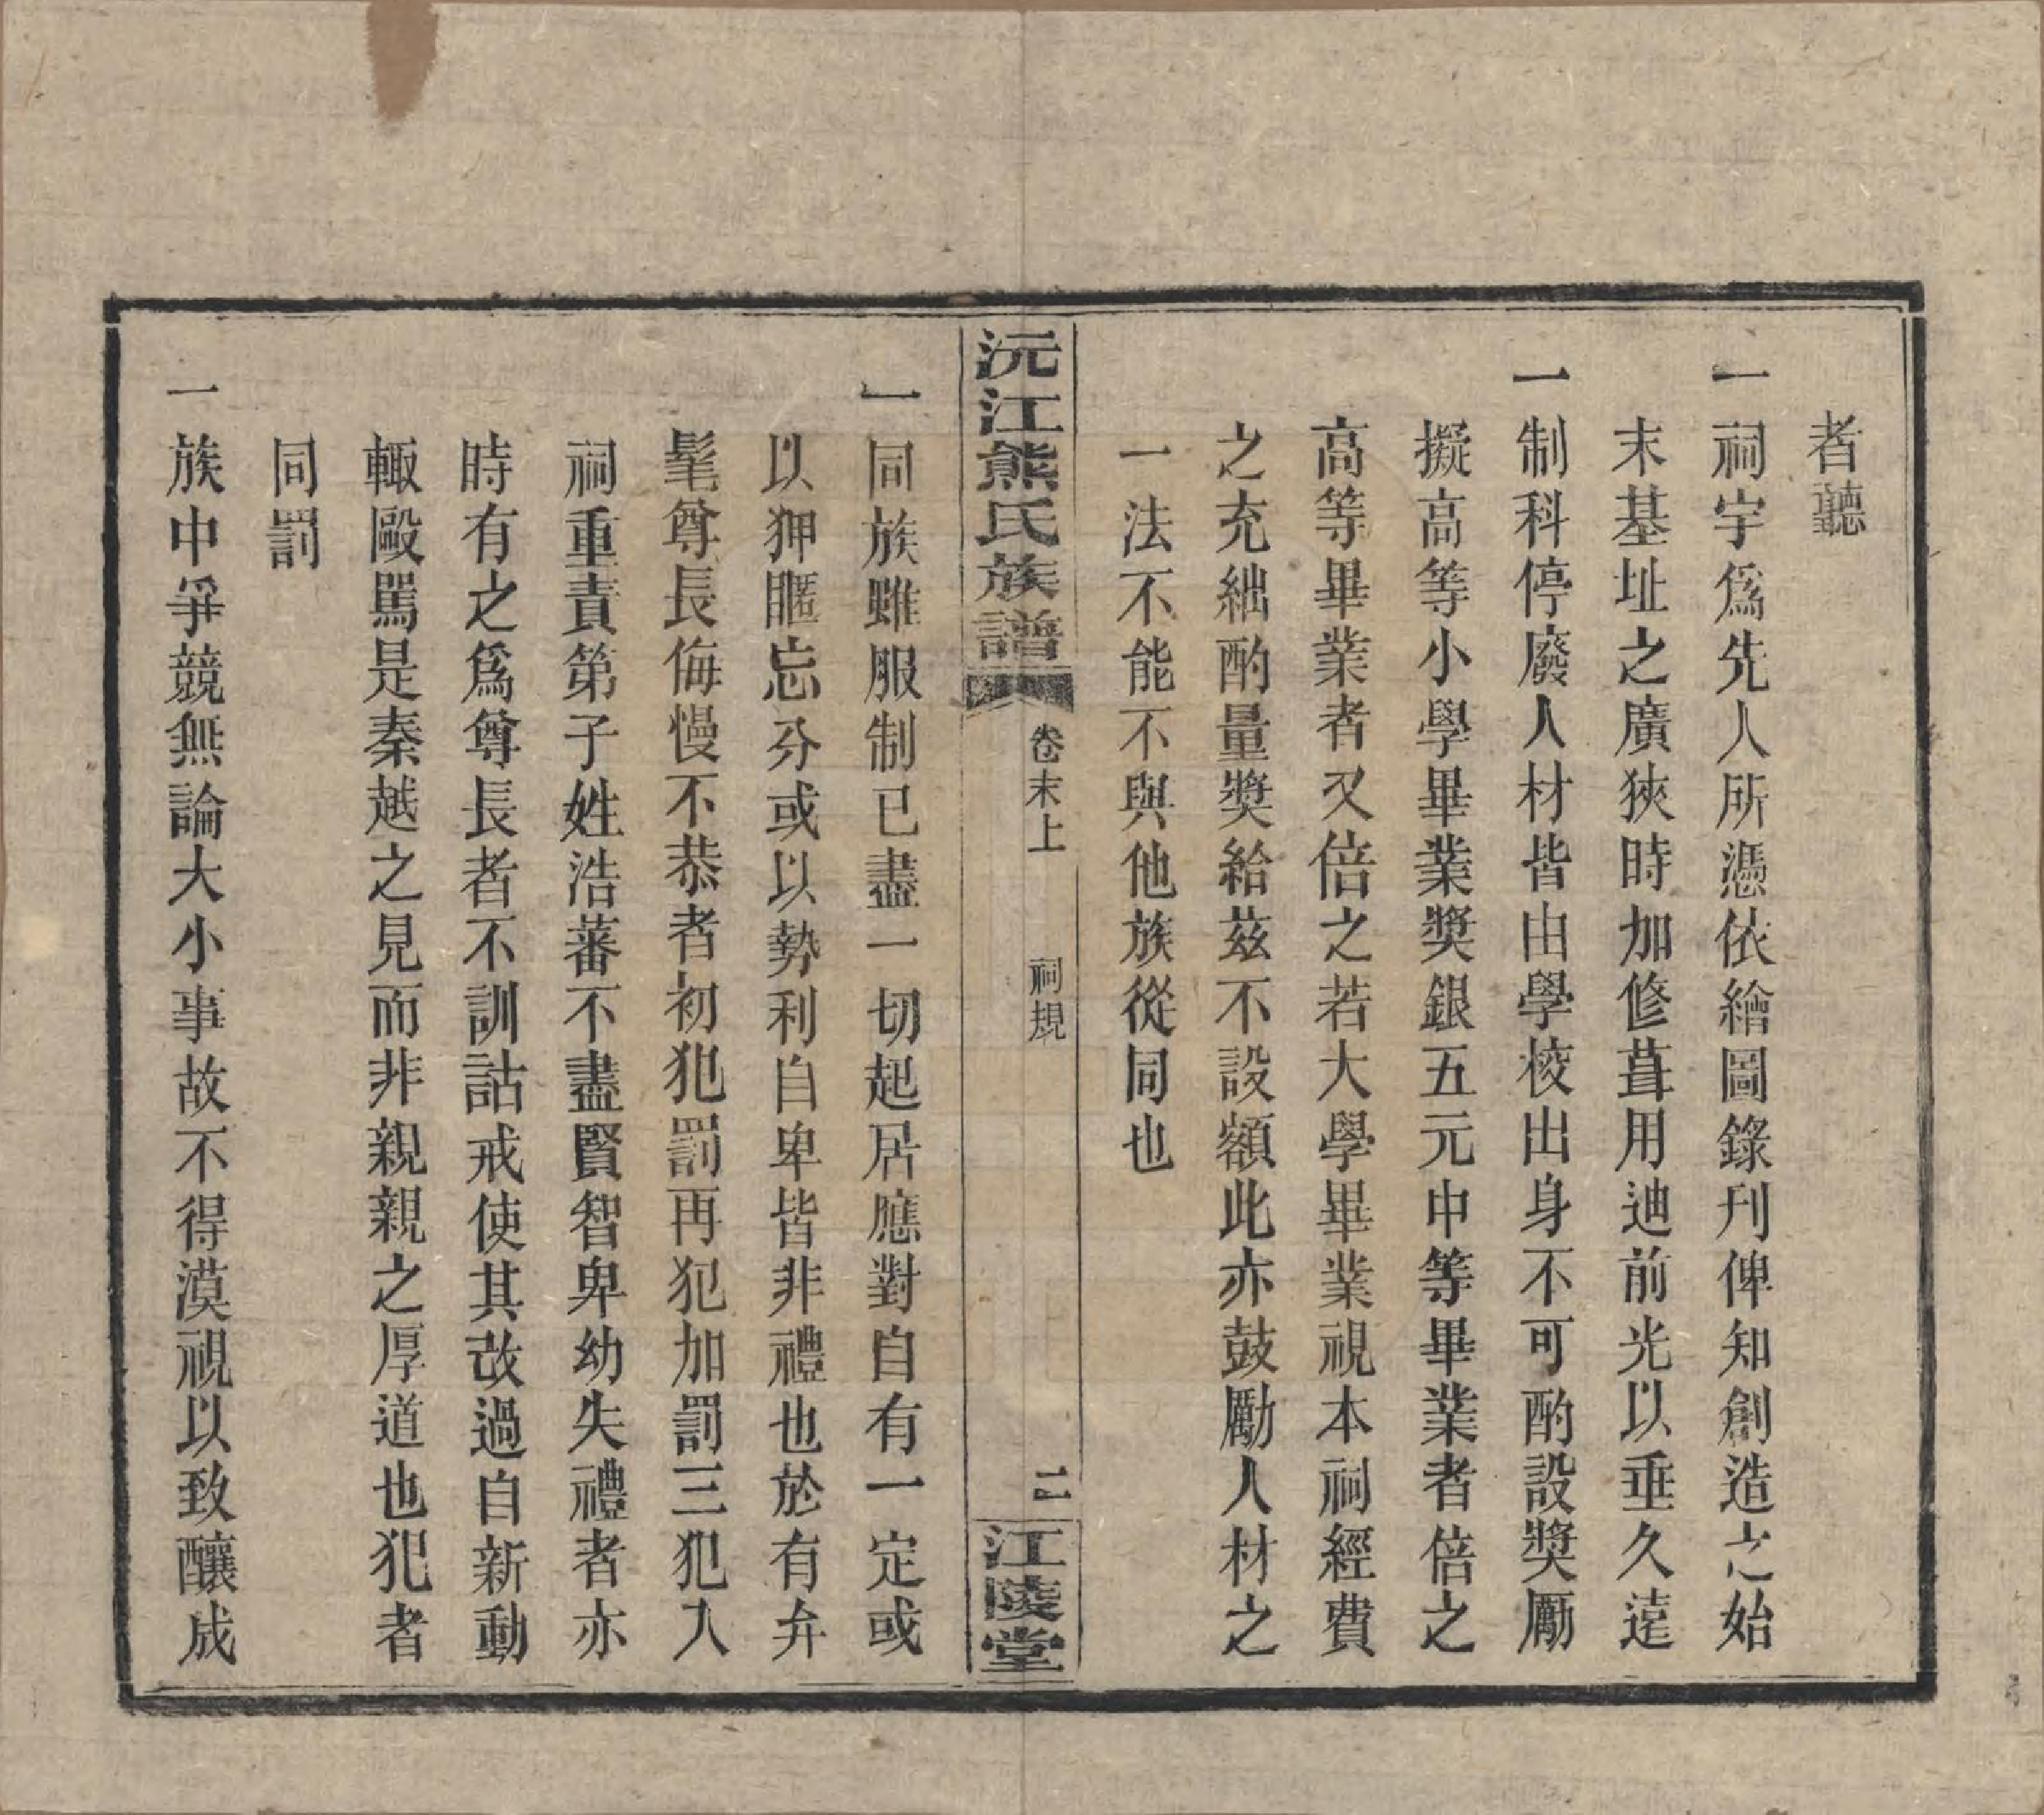 者聽
一祠宇爲先人所憑依繪圖錄刋俾知創造之始
末基址之廣狹時加修葺用迪前光以垂久遠
一制科停廢人材皆由學校出身不可酌設奬厲
擬高等小學畢業奬銀五元中等畢業者倍之
高等畢業者又倍之若大學畢業視本祠經費
之充絀酌量奬給茲不設額此亦鼓勵人材之
一法不能不與他族從同也
沅江熊氏族譜
卷末上
祠規
二
江陵堂
一同族雖服制已盡一切起居應對自有一定或
以狎暱忘分或以勢利自卑皆非禮也於有弁
髦尊長侮慢不恭者初犯罰再犯加罰三犯入
祠重責第子姓浩蕃不盡賢智卑幼失禮者亦
時有之爲尊長者不訓詁戒使其改過自新動
輙毆駡是秦越之見而非親親之厚道也犯者
同罰
一族中爭競無論大小事故不得漠視以致釀成